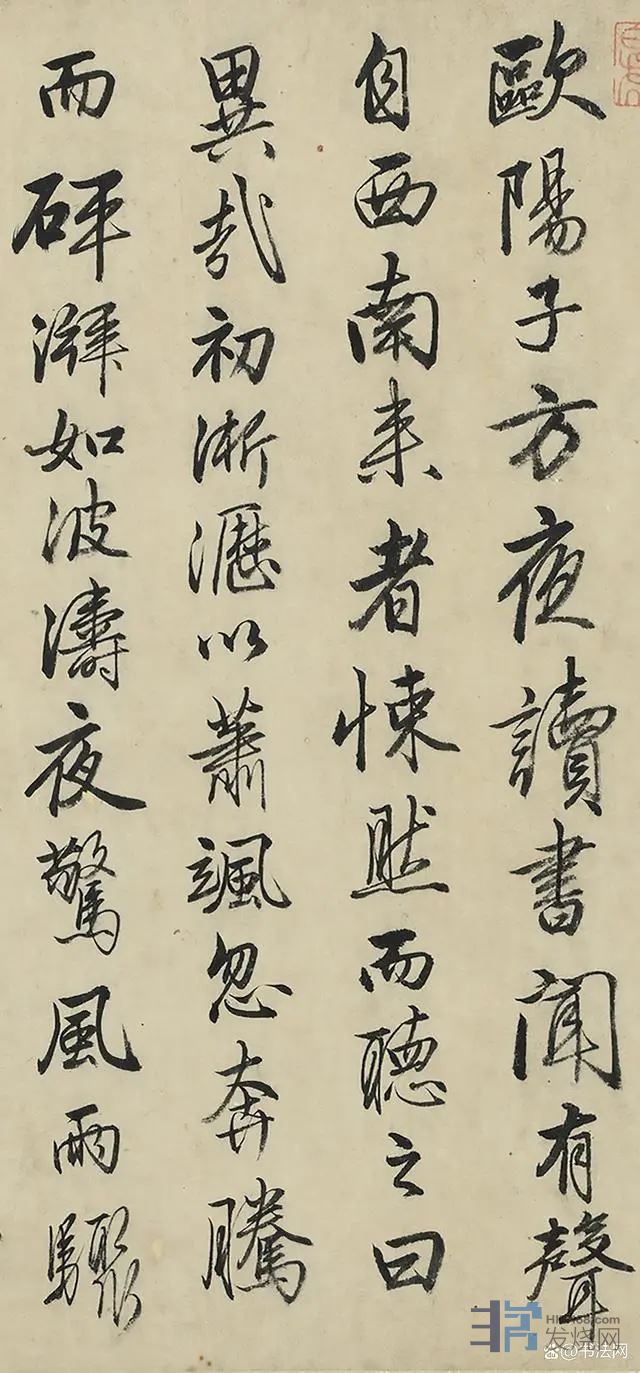 歐陽子方夜讀書聞有聲
自西南来者悚然而聽之曰
異哉初淅瀝以蕭颯忽奔騰
而砰湃如波濤夜驚風雨驟
发烧网
@书法网